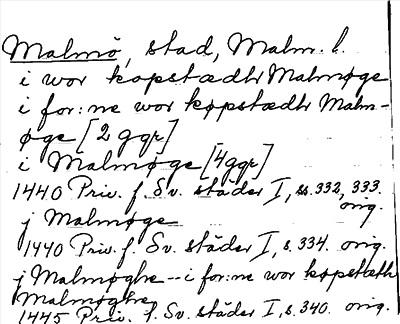 Malmö, stad, Malm. l.
i wor køpstædh Malmøge
i for:ne wor køpstædh Malm-
øge [2 ggr]
i Malmøge [4ggr]
1440 Priv. f. Sv. städer I, ss. 332, 333.
orig.
j Malmøge
1440 Priv. f. Sv. städer I, s. 334. orig.
j Malmøghe -- i for:ne wor køpstæth
Malmøghe
1445 Priv. f. Sv. städer I, s. 340. orig.